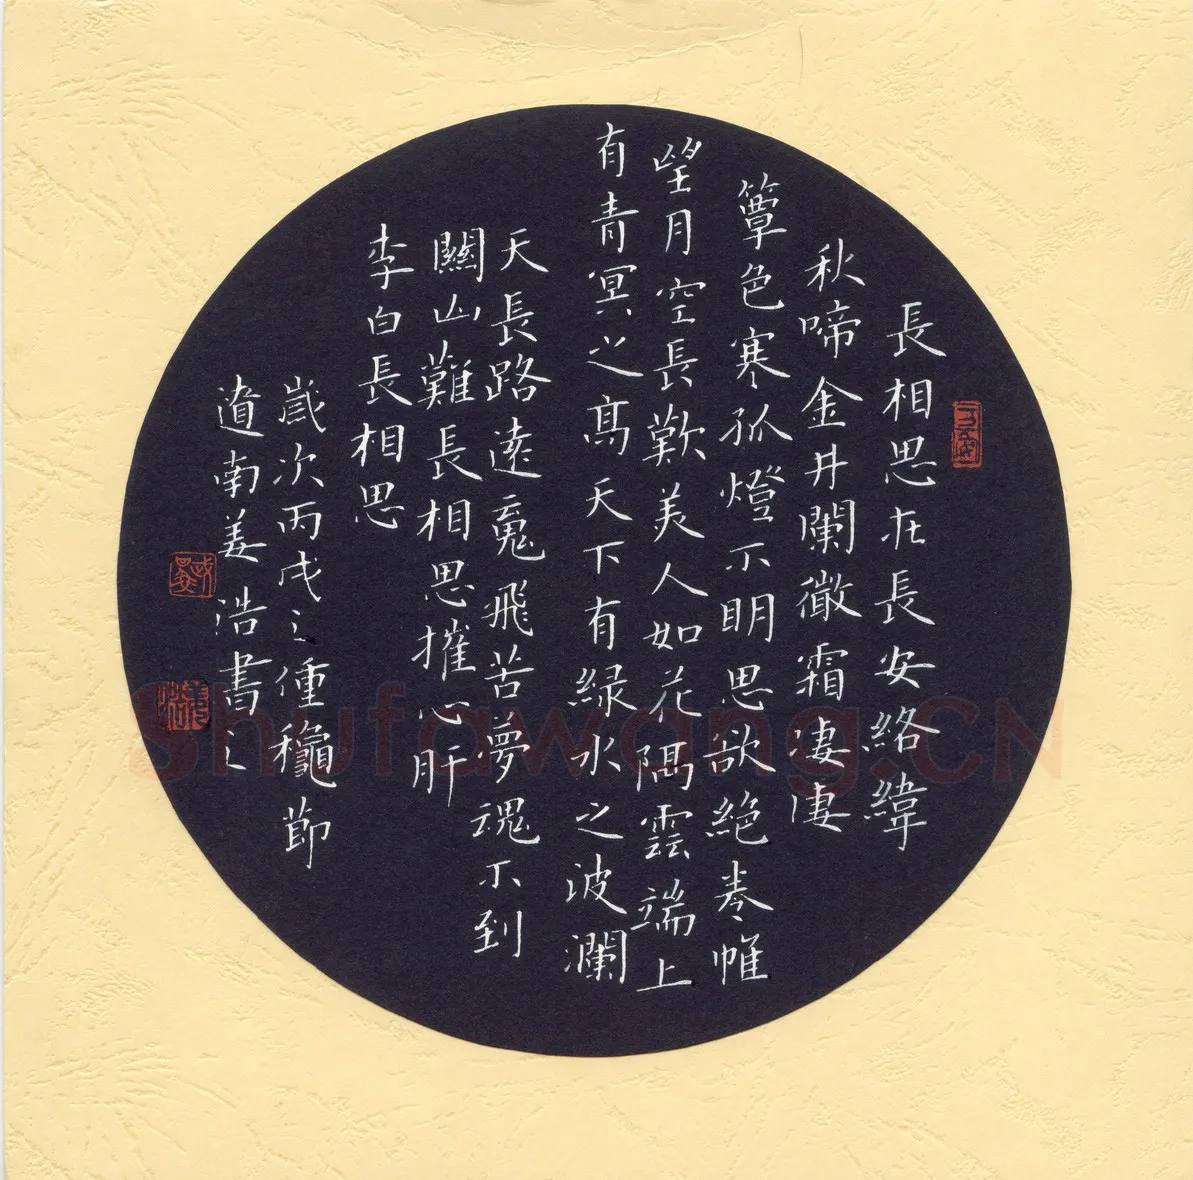 長相思在長安絡緯
秋啼金井闌微霜凄凄
簟色寒孤燈不明思欲絕卷帷
望月空長歎美人如花隔雲端上
有青冥之高天下有緑水之波瀾
天長路遠䰟飛苦夢魂不到
關山難長相思摧心肝
李白長相思
歲次丙戌之仲龝節
道南姜浩書之
Shufawang.CN